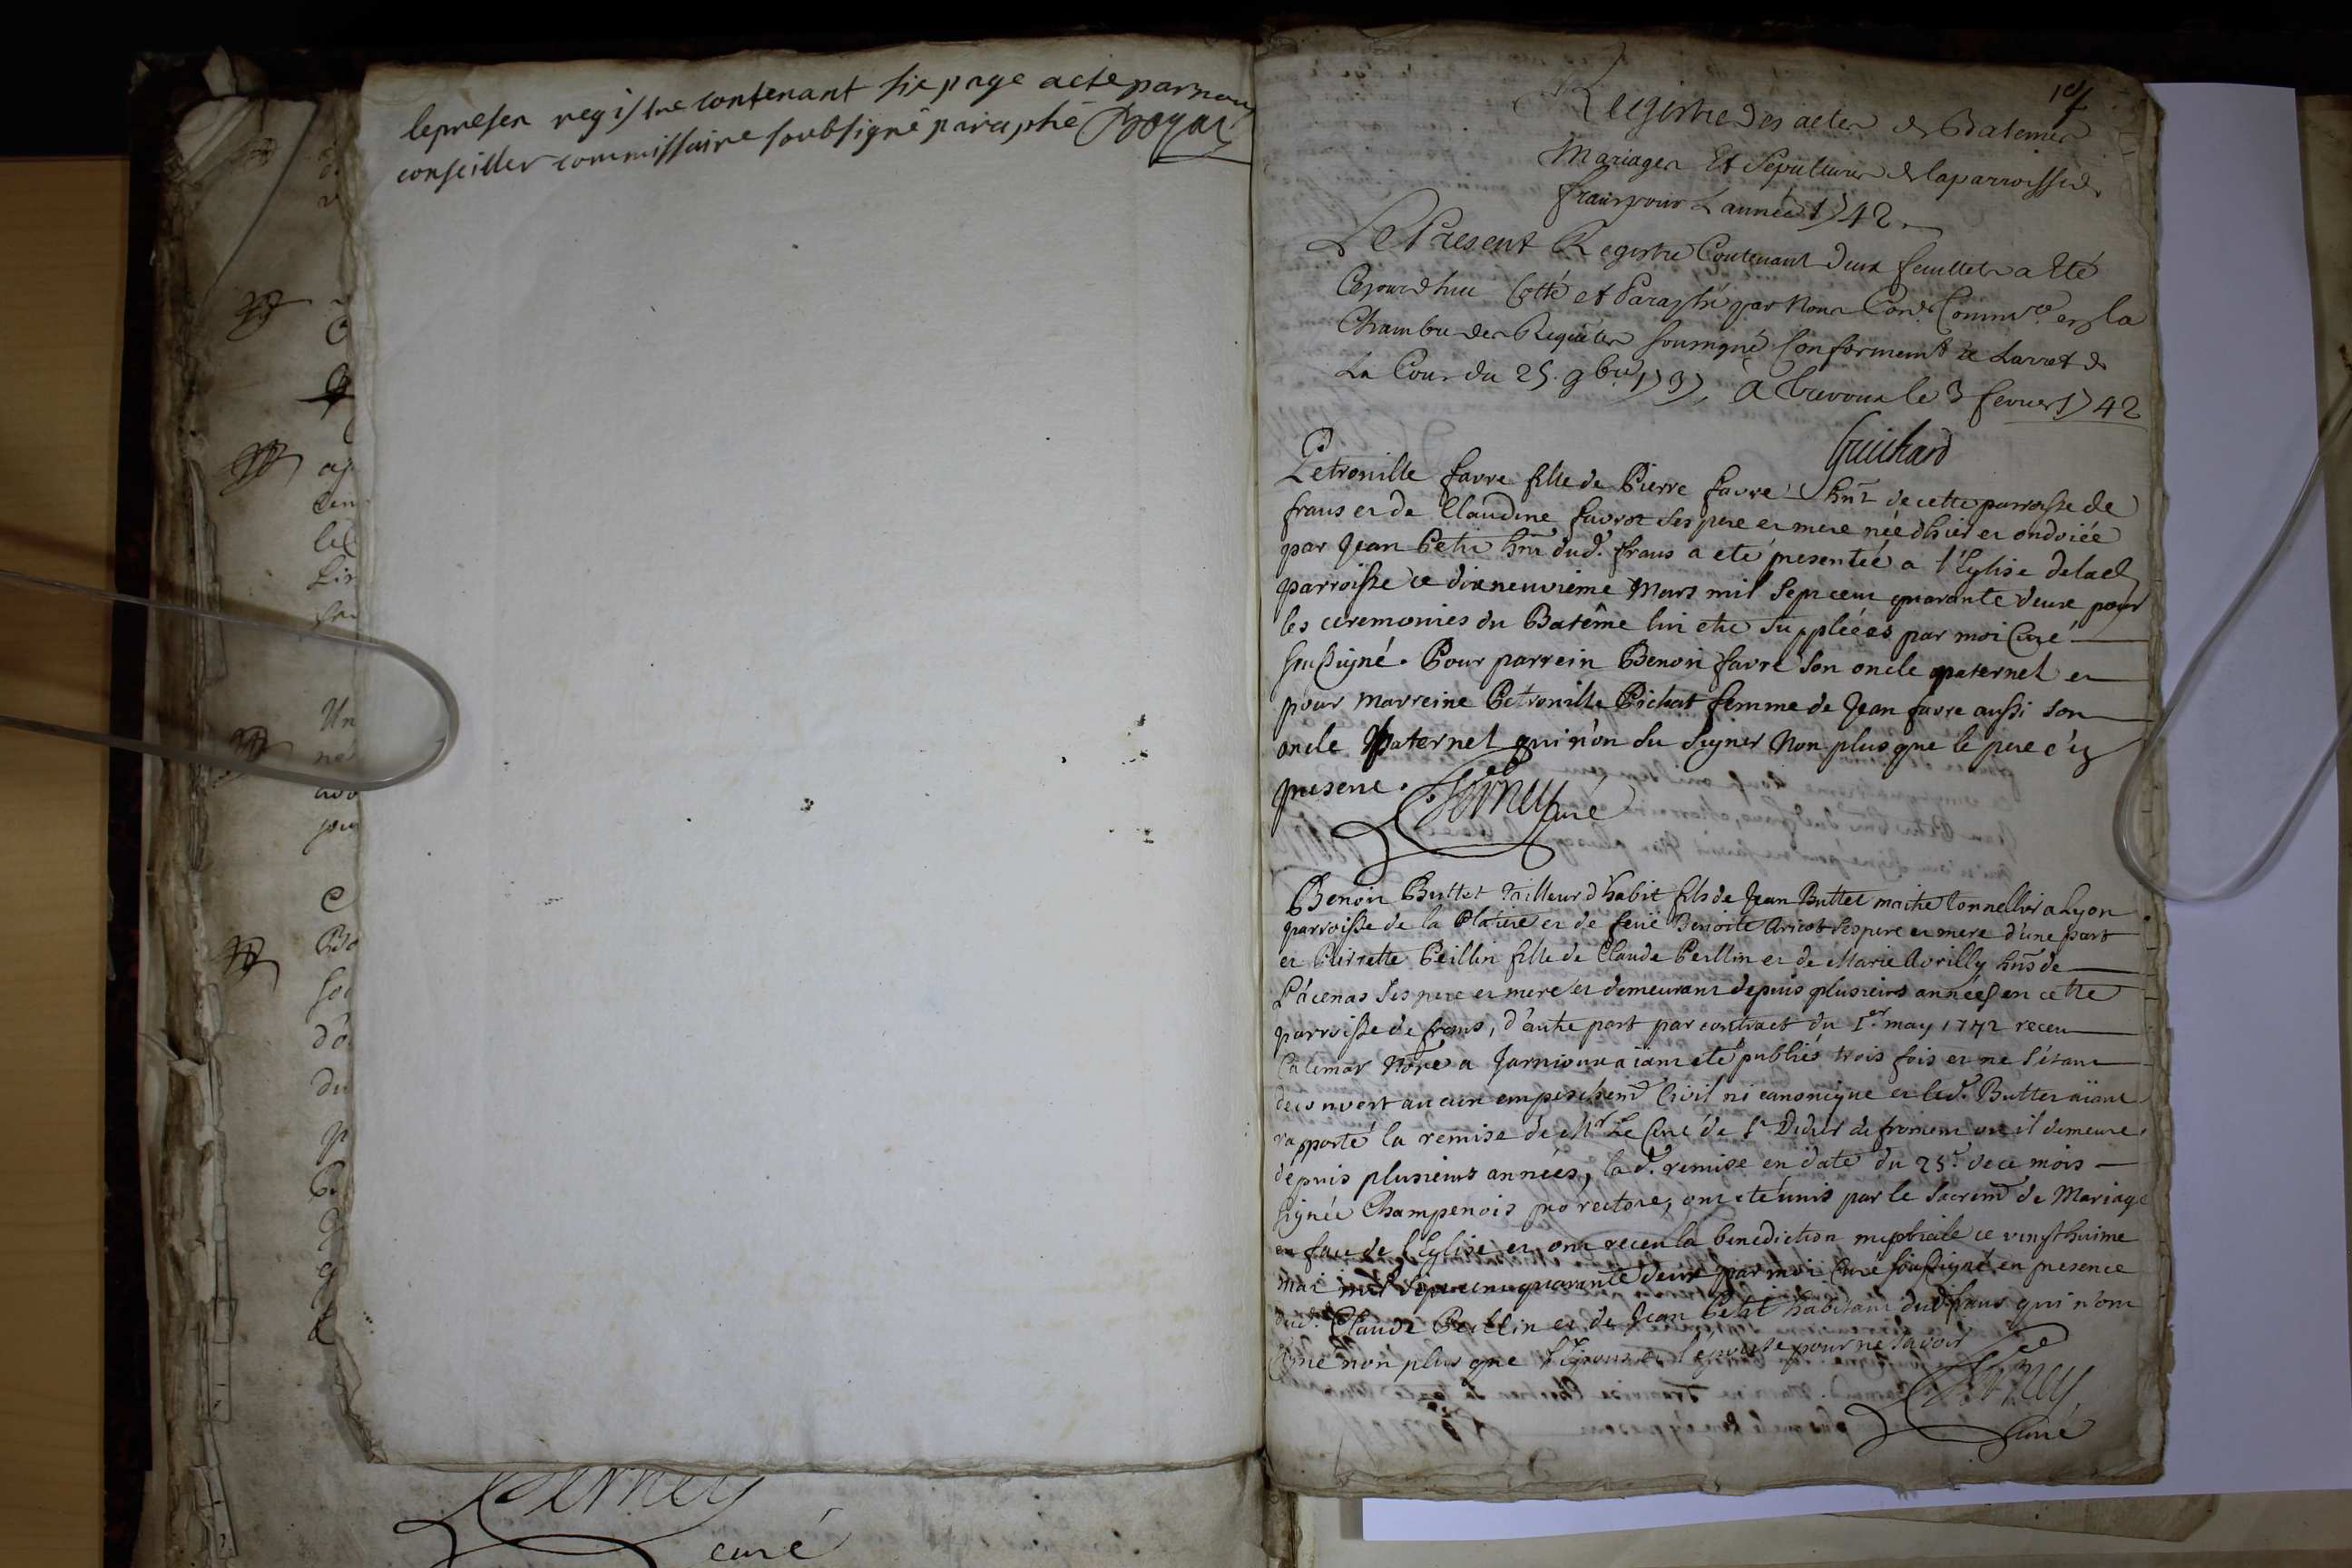 lepresen registre contenant sic page acte par nou
conseiller commissaire soubsigné paraphé
1er
Registre Des actes de Batemes
Mariages Et Sepultures de la parroisse de
frans pour L'année 1742
Le Present Registre Contenant deux feuillets a Eté
Cejourdhui Cotté et Paraphé par Nous Con.er Comm.re en la
Chambre des Requêtes soussigné Conformem.t a L'arret de
La Cour du 25. 9bre 1737, a Trevoux le 3 fevrier 1742
Guichard
Petronille favre fille de Pierre favre hnt de cette parroisse de
frans et de Claudine favrot ses pere et mere née d'hier et ondoiée
par Jean Petit hnt dud. frans a eté presentée a l'Eglise de lad.
parroisse ce dixneuvieme Mars mil sept cent quarante deux pour
les ceremonies du Batême lui etre suppléées par moi Curé
soussigné. Pour parrein Benoit favre son oncle paternel et
pour marreine Petronille Pichat femme de Jean favre aussi son
oncle Paternel qui n'on su signer Non plus que le pere c'y
present. curé
Benoit Buttet Tailleur d'habit fils de Jean Buttet maitre tonnellier a Lyon
parroisse de la Platiere et de feüe Benoite Aricot ses pere et mere d'une part
et Pierrette Peillin fille de Claude Peillin et de Marie Avrilly hnts de
Lácenas ses pere et mere et demeurant depuis plusieurs années en cette
parroisse de frans, d'autre part par contract du 1er may 1742 receu
Calemar Nore a Jarnioux aiant eté publiés trois fois et ne s'étant
decouvert aucun empeschemt Civil ni canonique et led. Buttet aiant
rapporté la remise de Mr Le Curé de St Didier de froment ou il demeure
depuis plusieurs années, lad. remise en date du 25e de ce mois
signée Champenois pro rectore, ont eté unis par le sacremt de Mariage
en face de l'Eglise et ont receu la benediction nuptiale ce vingt huitme
mai mil sept cent quarante deux par moi Curé soussigné en presence
dud. Claude Peillin et de Jean Petit habitant dud. frans qui n'ont
signé non plus que l'Epoux et l'epouse pour ne savoir
curé
curé